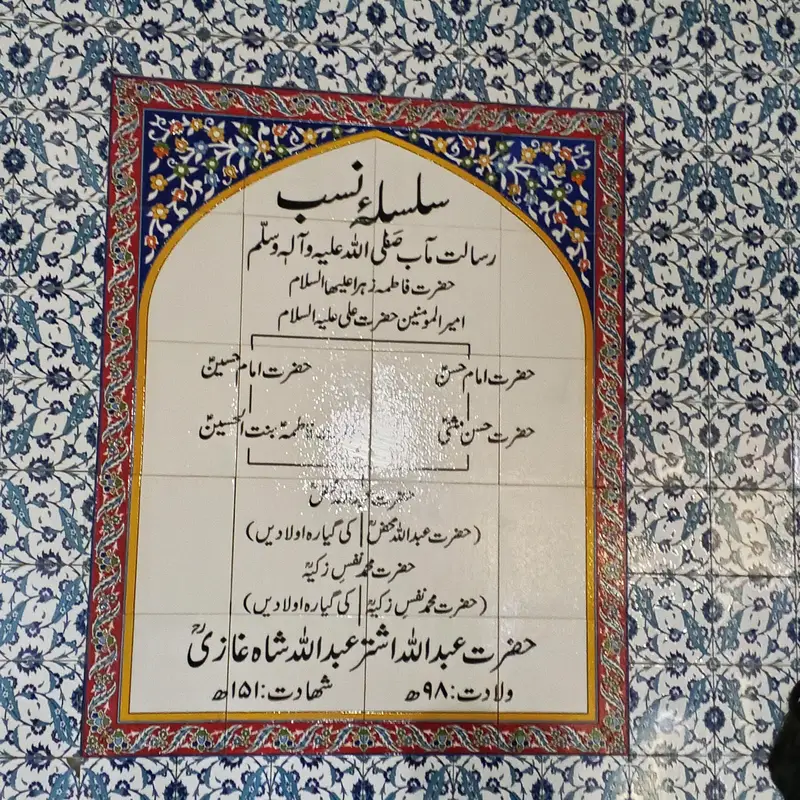 سلسلۂ نسب
رسالت مآب صَلّی اللہ علیہ وآلہٖ وسلّم
حضرت فاطمہ زہرا علیھا السلام
امیر المومنین حضرت علی علیہ السلام
حضرت امام حسنؑ حضرت امام حسینؑ
حضرت حسن مثنیٰؑ فاطمہؑ بنت الحسینؑ
حضرت عبداللہ محضؒ
(حضرت عبداللہ محضؒ کی گیارہ اولادیں)
حضرت محمد نفسِ زکیہؒ
(حضرت محمد نفسِ زکیہؒ کی گیارہ اولادیں)
حضرت عبداللہ اشتر عبداللہ شاہ غازیؒ
ولادت: ۹۸ھ شہادت: ۱۵۱ھ